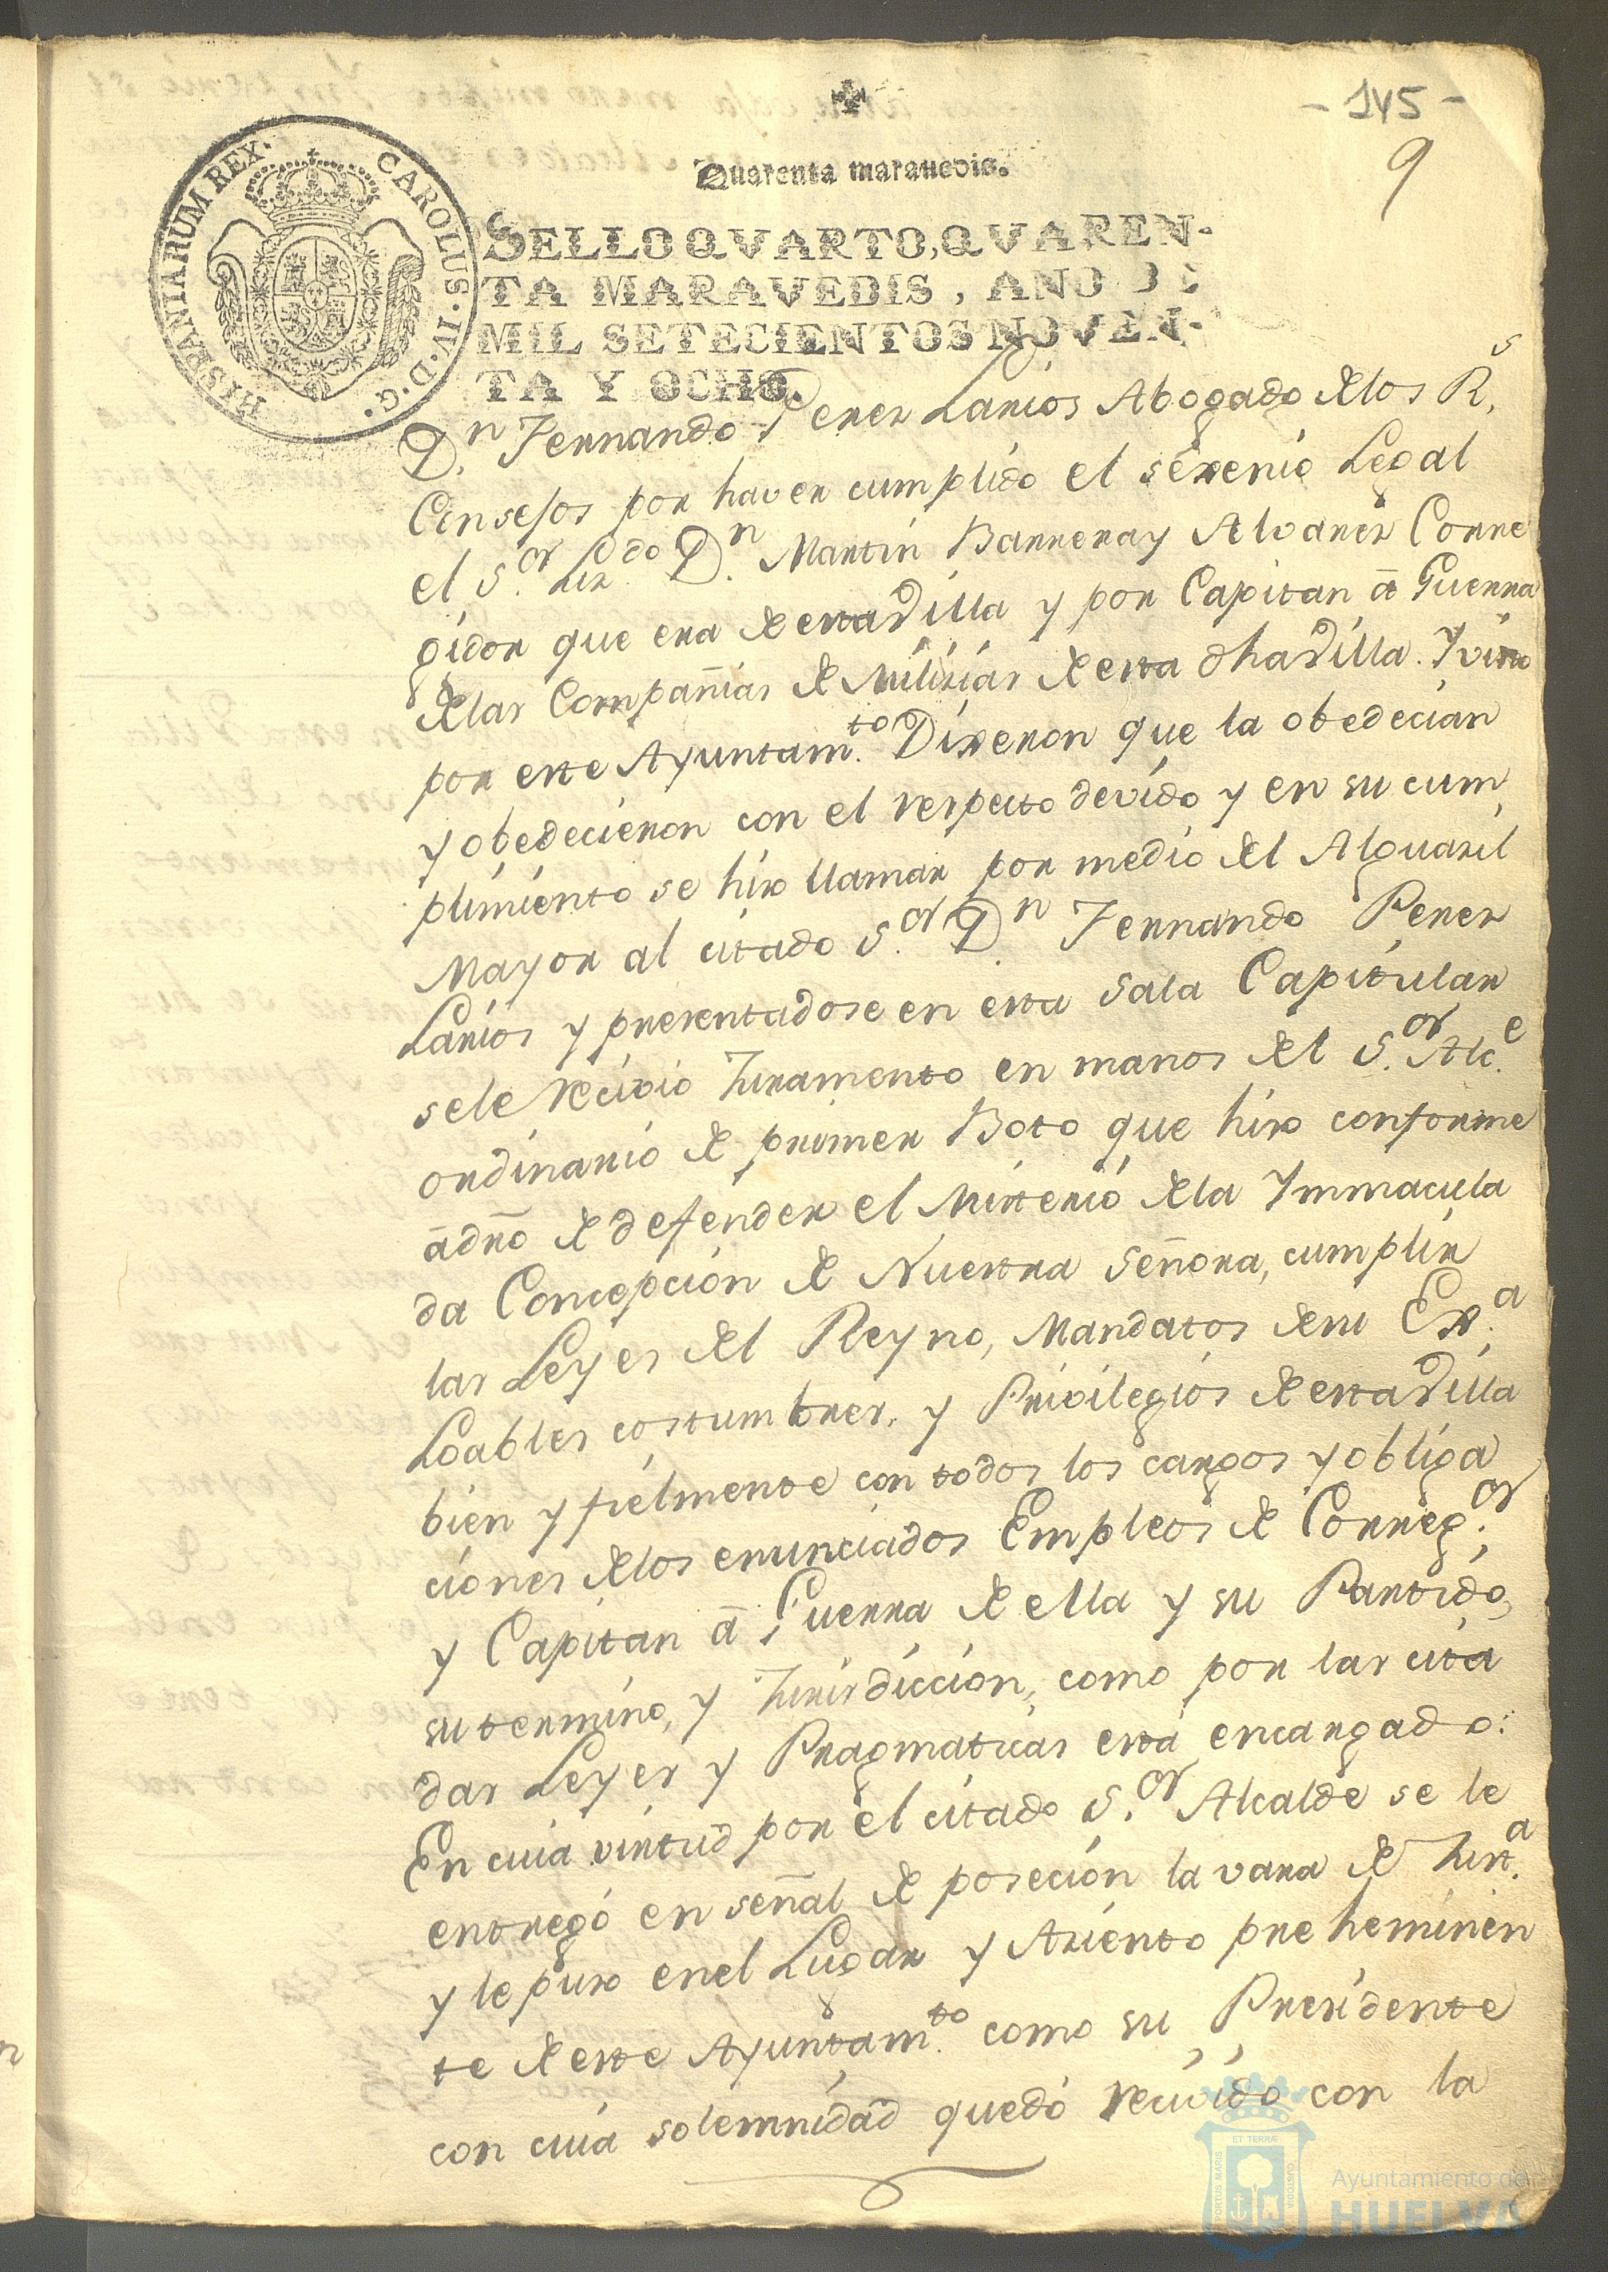 - 145 -
9
Quarenta maravedis.
HISPANIARUM REX. CAROLUS. IV. D. G.
SELLO QVARTO, QVAREN-
TA MARAVEDIS, AÑO DE
MIL SETECIENTOS NOVEN-
TA Y OCHO.
Dn. Fernando Perez Larios Abogado delos Rs.
Consejos por haver cumplido el sexenio Legal
el Sor. Lizdo. Dn. Martin Barrera y Alvarez Corre
gidor que era de esta Villa y por Capitan â Guerra
delas Compañias de Milizias de esta dha Villa. Y visto
por este Ayuntamto. Dixeron que la obedecian
y obedecieron con el respecto devido y en su cum
plimiento se hizo llamar por medio del Alguazil
Mayor al citado Sor. Dn. Fernando Perez
Larios y presentadose en esta Sala Capitular
sele recivio Juramento en manos del Sor. Alce.
ordinario de primer Boto que hizo conforme
â dro de defender el Misterio dela Ymmacula
da Concepcion de Nuestra Señora, cumplir
las Leyes del Reyno, Mandatos de su Exa.
Loables costumbres, y Privilegios de esta Villa
bien y fielmente con todos los cargos y obliga
ciones delos enunciados Empleos de Corregor.
y Capitan â Guerra de ella y su Partido,
su termino, y Jurisdiccion, como por las cita
das Leyes y Pragmaticas está encargado:
En cuia virtud por el citado Sor. Alcalde se le
entregó en señal de posecion la vara de Justa.
y le puso enel Lugar y Aziento preheminen
te de este Ayuntamto. como su Presidente
con cuia solemnidad quedó recivido con la
PORTUS MARIS ET TERRAE CUSTODIA
Ayuntamiento de
HUELVA